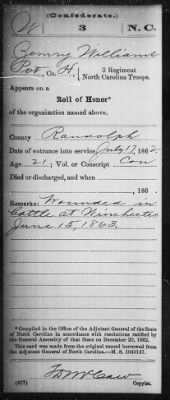 (Confederate.)
W 3 N.C.
Williams
Pvt, Co. H, 3 Regiment
North Carolina Troops.
Appears on a
Roll of Honor*
of the organization named above.
County Randolph
Date of entrance into service, July 17, 1862.
Age 21; Vol. or Conscript Con
Died or discharged, and when
, 186 .
Remarks: Wounded in
battle at Winchester
June 15, 1863.
*Compiled in the Office of the Adjutant General of the State
of North Carolina in accordance with resolutions ratified by
the General Assembly of that State on December 20, 1862.
This card was made from the original record borrowed from
the Adjutant General of North Carolina.—M. S. 1040147.
(627) Copyist.